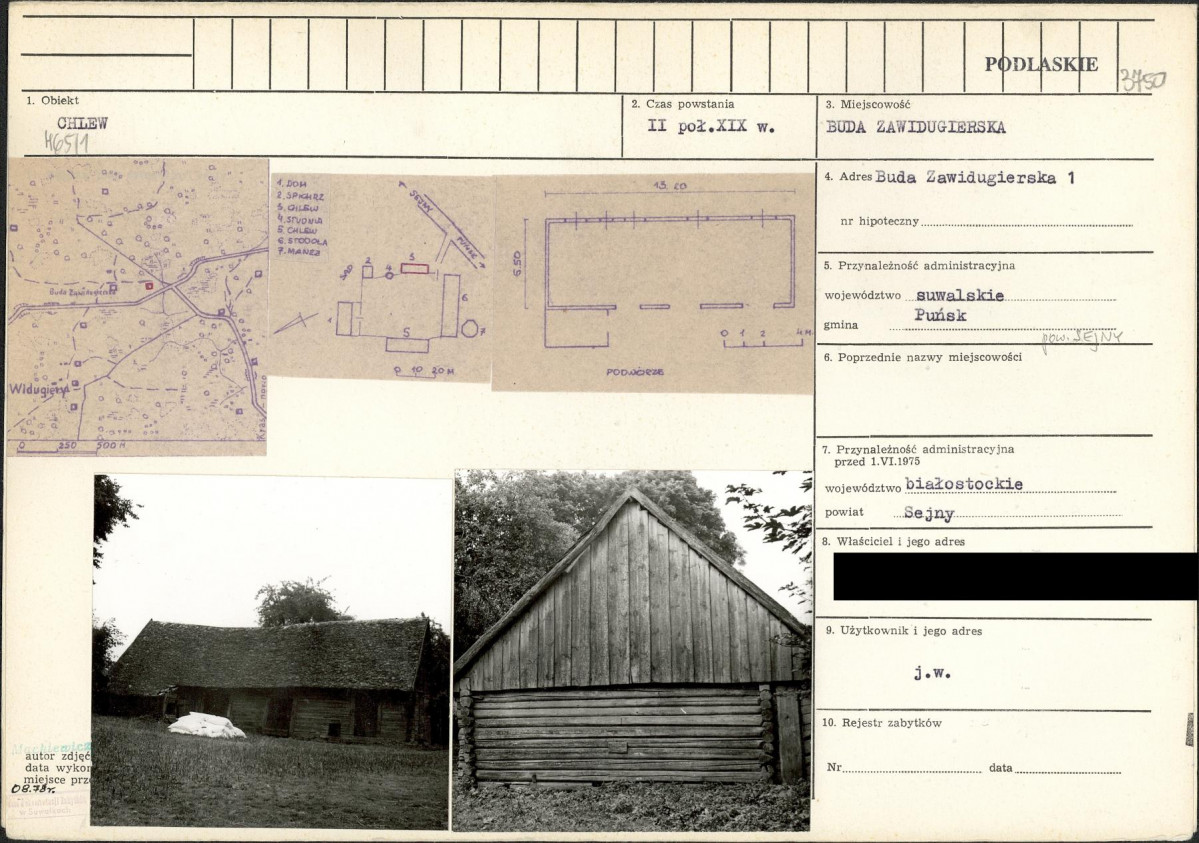 PODLASKIE
3750
1. Obiekt
CHLEW
2. Czas powstania
II poł.XIX w.
3. Miejscowość
BUDA ZAWIDUGIERSKA
4. Adres Buda Zawidugierska 1
nr hipoteczny
5. Przynależność administracyjna
województwo suwalskie
gmina Puńsk
pow. SEJNY
6. Poprzednie nazwy miejscowości
7. Przynależność administracyjna
przed 1.VI.1975
województwo białostockie
powiat Sejny
8. Właściciel i jego adres
9. Użytkownik i jego adres
j.w.
10. Rejestr zabytków
Nr data
Widugiery
0 250 500 M
1. DOM
2. SPICHRZ
3. CHLEW
4. STUDNIA
5. CHLEW
6. STODOŁA
7. MANEŻ
SEJNY
PUŃSK
SAD
2
4
3
1
6
5
7
0 10 20 M
13.20
6.50
0 1 2 4 M.
PODWÓRZE
Mackiewicz
autor zdjęć
data wykon
miejsce prze